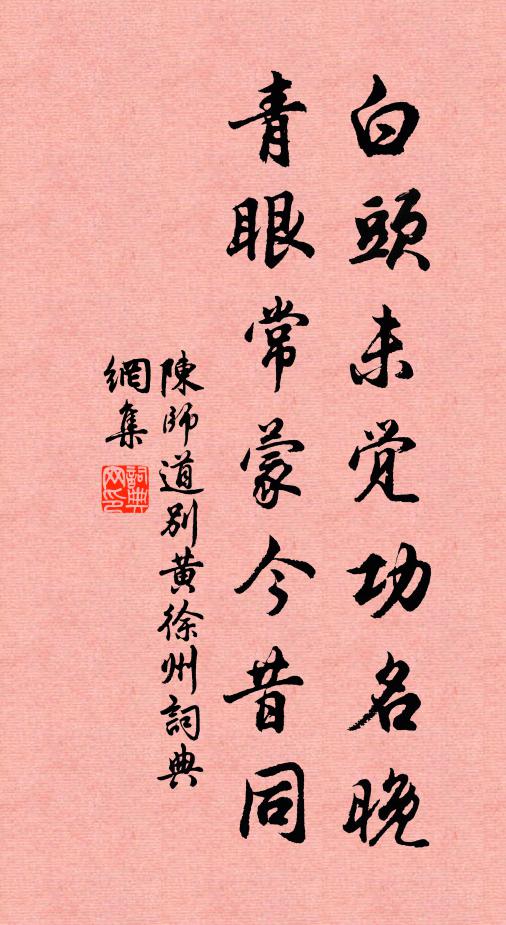 白頭未覚功名晚
青眼常蒙今昔同
陳師道別黃徐州詞典
網集
詞典網印